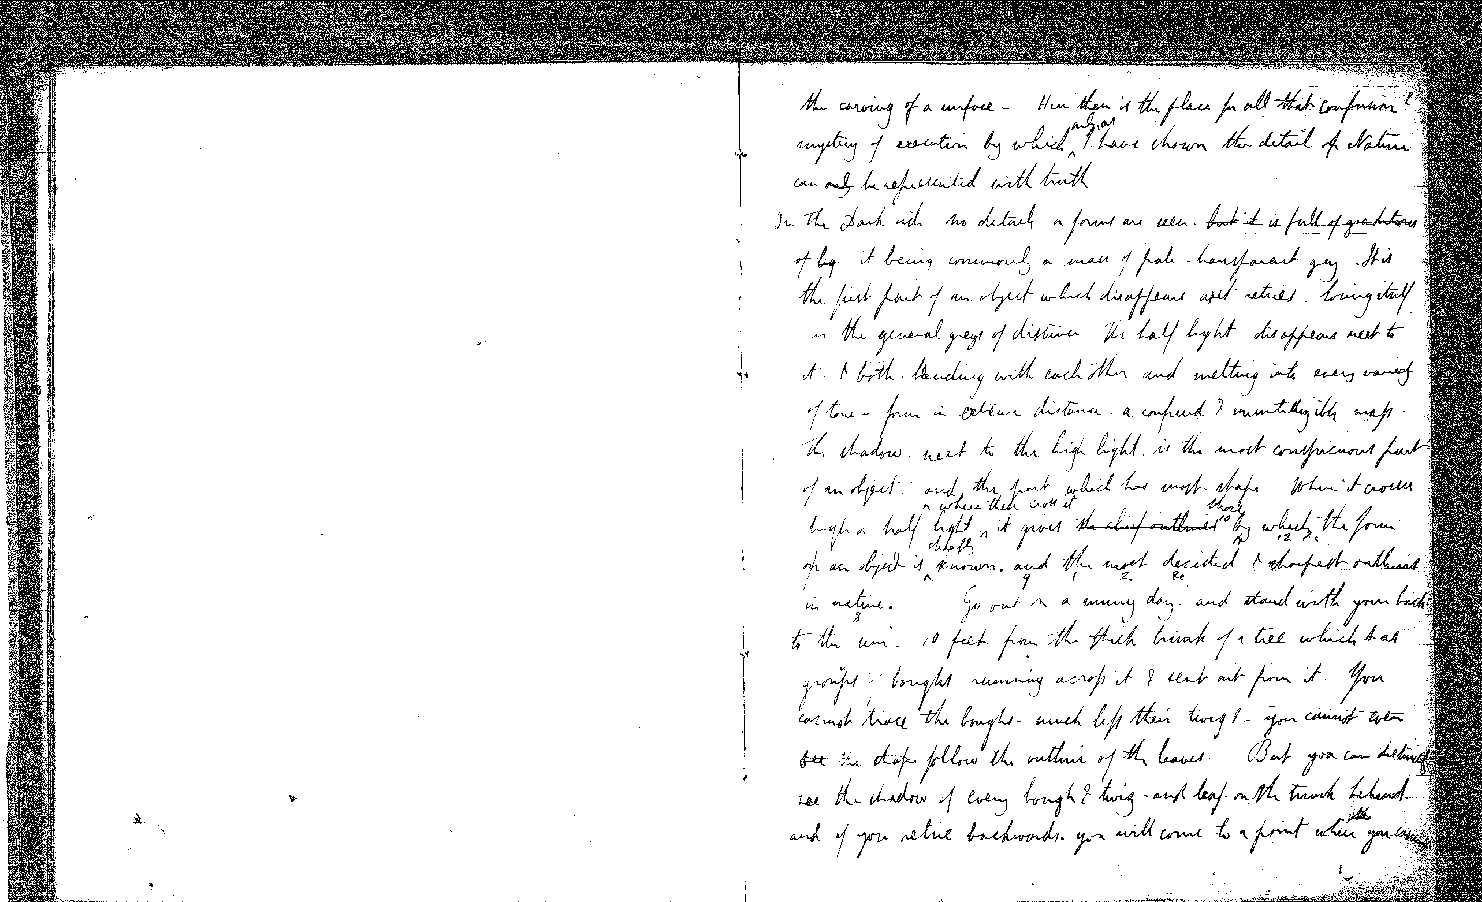 the carving of a surface – Here then is the place for all that confusion &
mystery of execution by which I have shown the detail of Nature
can only be represented with truth
In the Dark side no details or forms are seen. but it is full of gradations
of it being commonly a mass of pale transparent grey. It is
the first part of an object which disappears as it retires. losing itself
in the general greys of distance the half light disappears next to
it. & both blending with each other and melting into every variety
of tone – form in extreme distance. a confused & unintelligible mass.
the shadow. next to the high light. is the most conspicuous part
of an object. and the part which has most shape When it crosses
where these cross it those
high or half light it gives the chief outlines by which the form
chiefly
of an object is known. and the most decided & sharpest outlines
in nature. Go out on a sunny day. and stand with your back
to the sun. 10 feet from the thick trunk of a tree which has
groups boughs running across it & sent out from it. You
cannot trace the boughs – much less their twigs – you cannot even
see the shape follow the outline of the leaves. But you can distinctly
see the shadow of every bough & twig – and leaf on the trunk behind
and if you retire backwards. you will come to a point when you